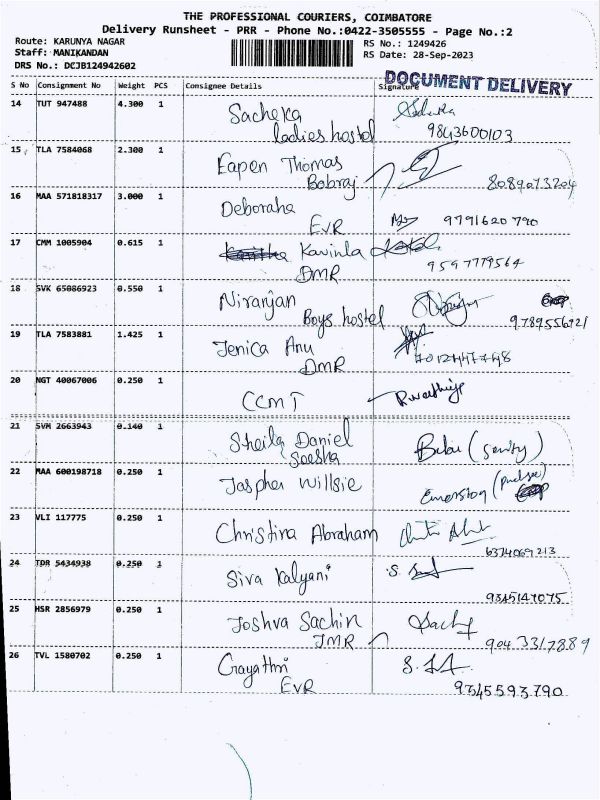 THE PROFESSIONAL COURIERS, COIMBATORE
Delivery Runsheet - PRR - Phone No.:0422-3505555 - Page No.:2
Route: KARUNYA NAGAR
RS No.: 1249426
Staff: MANIKANDAN
RS Date: 28-Sep-2023
DRS No.: DCJB124942602
DOCUMENT DELIVERY
S No Consignment No Weight PCS Consignee Details Signature
14 TUT 947488 4.300 1 Sacheka
ladies hostel 9843600103
15 TLA 7584068 2.300 1 Eapen Thomas
Bobraj 8089073204
16 MAA 571818317 3.000 1 Deboraha
EVR 9791620790
17 CMM 1005904 0.615 1 Kavinla
DMR 9597779564
18 SVK 65086923 0.550 1 Niranjan
Boys hostel 9789556921
19 TLA 7583881 1.425 1 Jenica Anu
DMR 7012447748
20 NGT 40067006 0.250 1 CCMT
21 SVM 2663943 0.140 1 Sheila Daniel
Seesha
22 MAA 600198718 0.250 1 Jaspher Willsie
23 VLI 117775 0.250 1 Christina Abraham
6374069213
24 TDR 5434938 0.250 1 Siva Kalyani
9345147075
25 HSR 2856979 0.250 1 Joshva Sachin Sachy
JMR 9043317889
26 TVL 1580702 0.250 1 Gayathri
EVR 9345593790